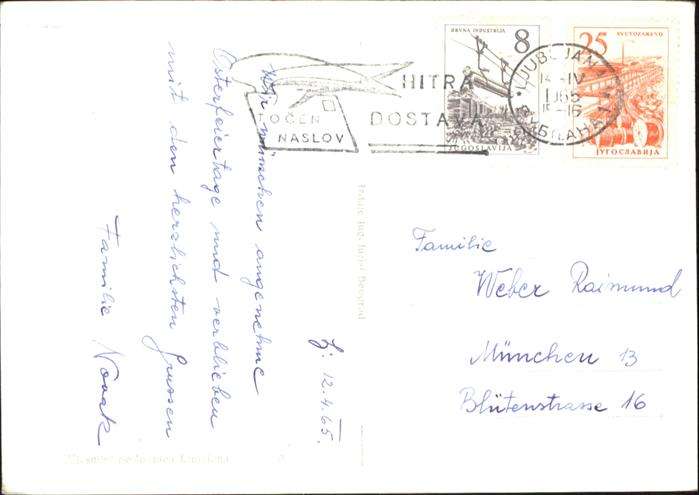 Wir wünschen angenehme
Osterfeiertage und verblieben
mit den herzlichsten Grussen
Familie Novak
Lj 12.4.65.
HITRA
DOSTAVA
TOČEN
NASLOV
DRVNA INDUSTRIJA
8
JUGOSLAVIJA
25
SVETOZAREVO
ЈУГОСЛАВИЈА
LJUBLJANA
14-IV
1965
15-16
Familie
Weber Raimund
München 13
Blütenstrasse 16